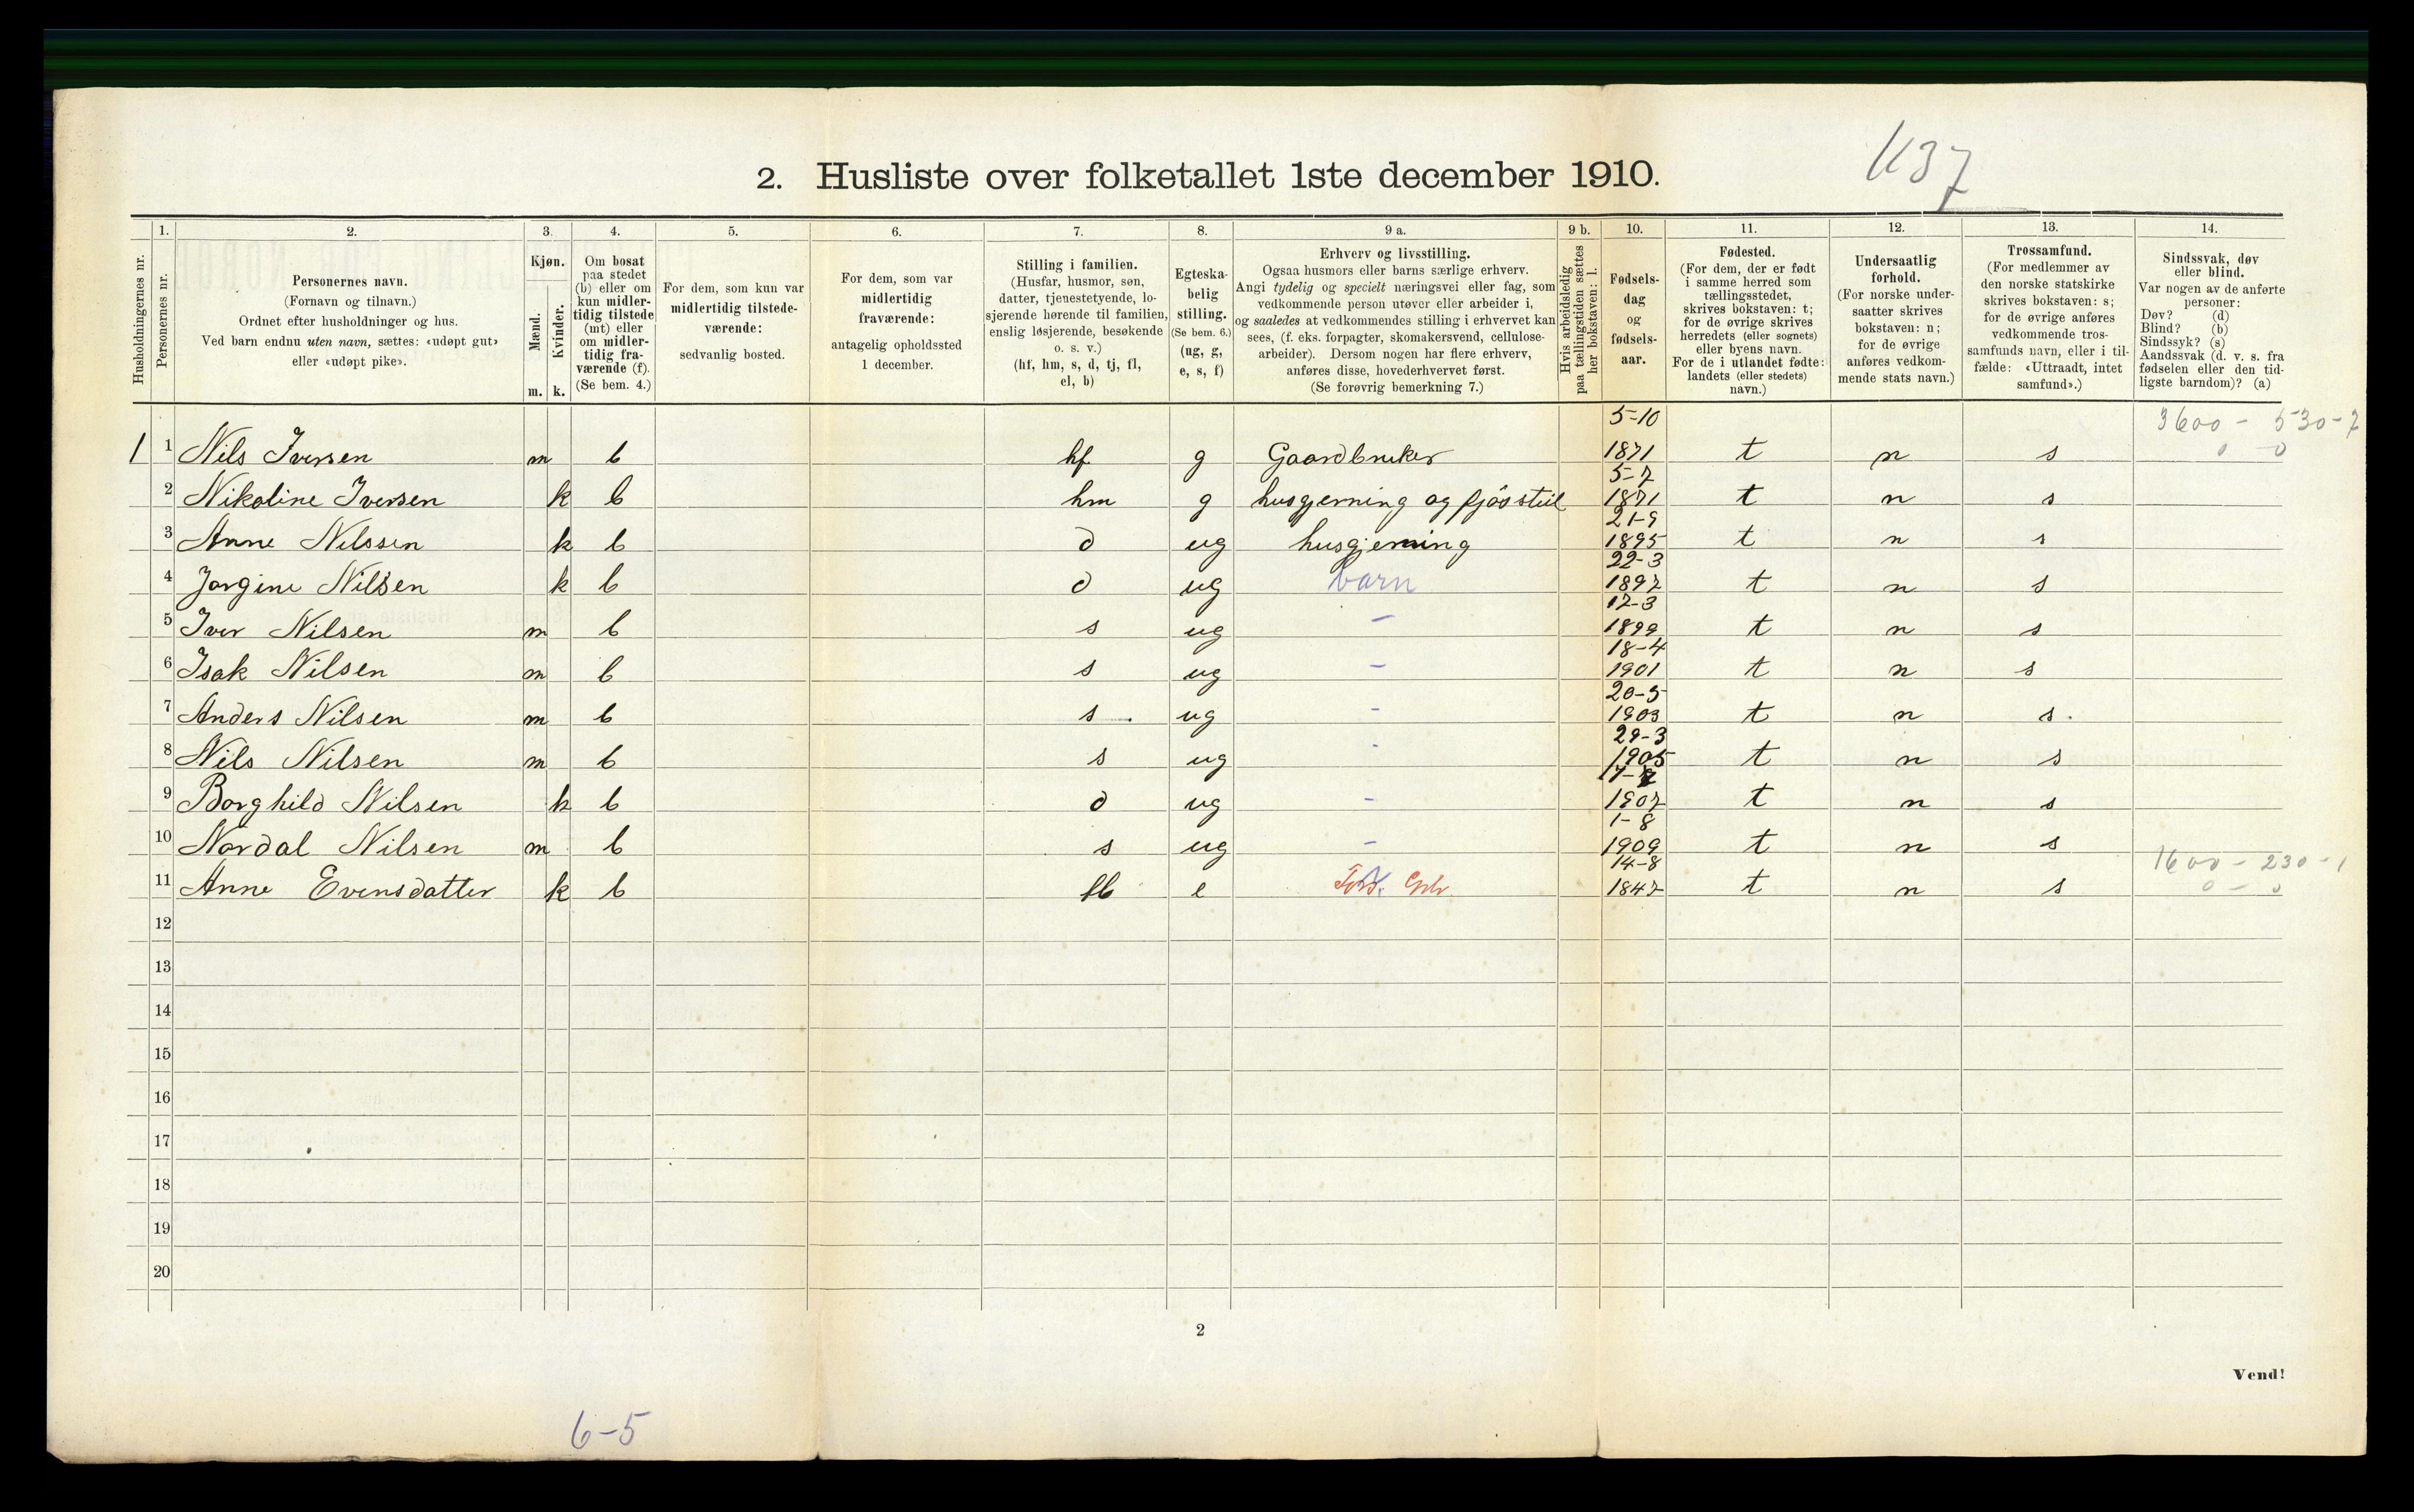 1137
2. Husliste over folketallet 1ste december 1910.
Husholdningernes nr.
1. Personernes nr.
2. Personernes navn. (Fornavn og tilnavn.) Ordnet efter husholdninger og hus. Ved barn endnu uten navn, sættes: «udøpt gut» eller «udøpt pike».
3. Kjøn. Mænd. m. Kvinder. k.
4. Om bosat paa stedet (b) eller om kun midlertidig tilstede (mt) eller om midlertidig fraværende (f). (Se bem. 4.)
5. For dem, som kun var midlertidig tilstedeværende: sedvanlig bosted.
6. For dem, som var midlertidig fraværende: antagelig opholdssted 1 december.
7. Stilling i familien. (Husfar, husmor, søn, datter, tjenestetyende, losjerende hørende til familien, enslig løsjerende, besøkende o. s. v.) (hf, hm, s, d, tj, fl, el, b)
8. Egteskabelig stilling. (Se bem. 6.) (ug, g, e, s, f)
9 a. Erhverv og livsstilling. Ogsaa husmors eller barns særlige erhverv. Angi tydelig og specielt næringsvei eller fag, som vedkommende person utøver eller arbeider i, og saaledes at vedkommendes stilling i erhvervet kan sees, (f. eks. forpagter, skomakersvend, cellulosearbeider). Dersom nogen har flere erhverv, anføres disse, hovederhvervet først. (Se forøvrig bemerkning 7.)
9 b. Hvis arbeidsledig paa tællingstiden sættes her bokstaven: l.
10. Fødselsdag og fødselsaar.
11. Fødested. (For dem, der er født i samme herred som tællingsstedet, skrives bokstaven: t; for de øvrige skrives herredets (eller sognets) eller byens navn. For de i utlandet fødte: landets (eller stedets) navn.)
12. Undersaatlig forhold. (For norske undersaatter skrives bokstaven: n; for de øvrige anføres vedkommende stats navn.)
13. Trossamfund. (For medlemmer av den norske statskirke skrives bokstaven: s; for de øvrige anføres vedkommende trossamfunds navn, eller i tilfælde: «Uttraadt, intet samfund».)
14. Sindssvak, døv eller blind. Var nogen av de anførte personer: Døv? (d) Blind? (b) Sindssyk? (s) Aandssvak (d. v. s. fra fødselen eller den tidligste barndom)? (a)
5-10 3600 - 530-7
1 1 Nils Iversen m b hf g Gaardbruker 1871 t n s 0 0
5-7
2 Nikoline Iversen k b hm g husgjerning og fjösstell 1871 t n s
21-9
3 Anne Nilssen k b d ug husgjerning 1895 t n s
22-3
4 Jørgine Nilsen k b d ug barn 1897 t n s
12-3
5 Iver Nilsen m b s ug - 1899 t n s
18-4
6 Isak Nilsen m b s ug - 1901 t n s
20-5
7 Anders Nilsen m b s ug - 1903 t n s
29-3
8 Nils Nilsen m b s ug - 1905 t n s
9 Borghild Nilsen k b d ug - 1907 t n s
1-8
10 Nordal Nilsen m b s ug - 1909 t n s
14-8 1600 - 230 - 1
11 Anne Evensdatter k b fl e 1847 t n s 0 - 0
12
13
14
15
16
17
18
19
20
2
Vend!
6-5